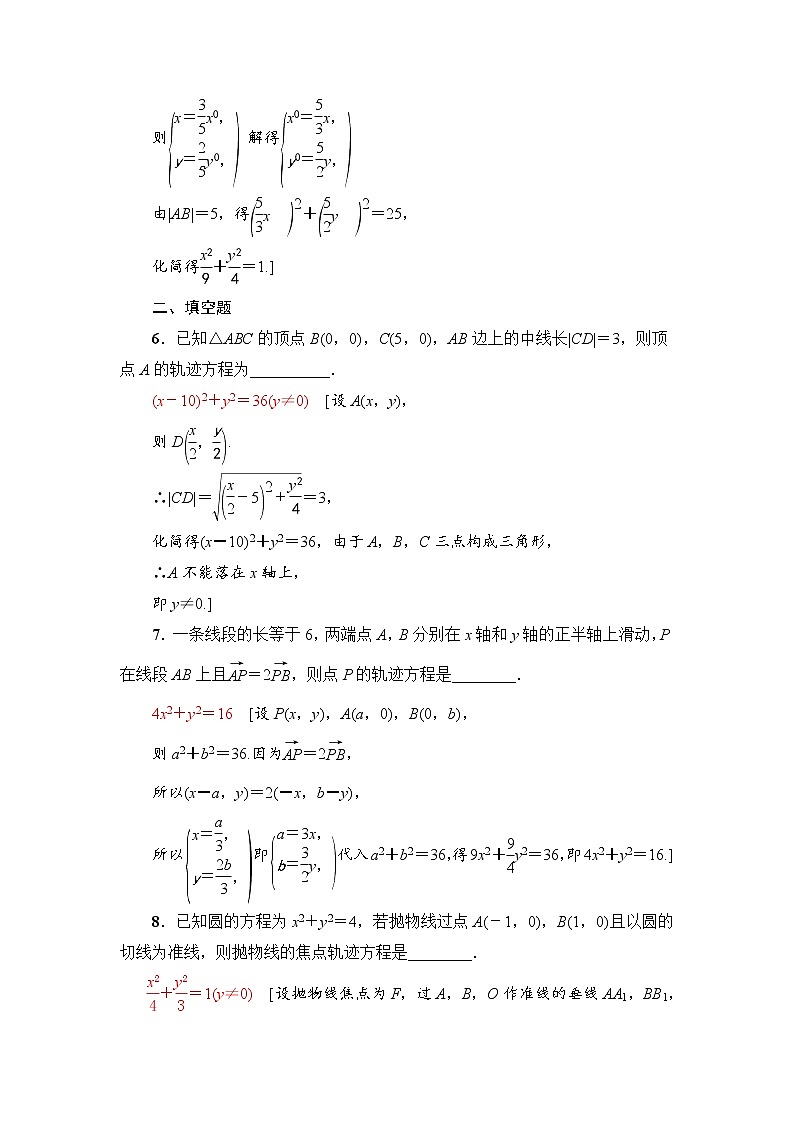 则{x=3/5x0, y=2/5y0,) 解得{x0=5/3x, y0=5/2y,)
由|AB|=5，得(5/3x )2+(5/2y )2=25，
化简得x2/9+y2/4=1.]
二、填空题
6．已知△ABC的顶点B(0，0)，C(5，0)，AB边上的中线长|CD|=3，则顶
点A的轨迹方程为__________．
(x-10)2+y2=36(y≠0) [设A(x，y)，
则D(x/2，y/2).
∴|CD|=√((x/2-5)2+y2/4)=3，
化简得(x-10)2+y2=36，由于A，B，C三点构成三角形，
∴A不能落在x轴上，
即y≠0.]
7．一条线段的长等于6，两端点A，B分别在x轴和y轴的正半轴上滑动，P
在线段AB上且→AP=2→PB，则点P的轨迹方程是________．
4x2+y2=16 [设P(x，y)，A(a，0)，B(0，b)，
则a2+b2=36.因为→AP=2→PB，
所以(x-a，y)=2(-x，b-y)，
所以{x=a/3, y=2b/3,)即{a=3x, b=3/2y,)代入a2+b2=36，得9x2+9/4y2=36，即4x2+y2=16.]
8．已知圆的方程为x2+y2=4，若抛物线过点A(-1，0)，B(1，0)且以圆的
切线为准线，则抛物线的焦点轨迹方程是________．
x2/4+y2/3=1(y≠0) [设抛物线焦点为F，过A，B，O作准线的垂线AA1，BB1，